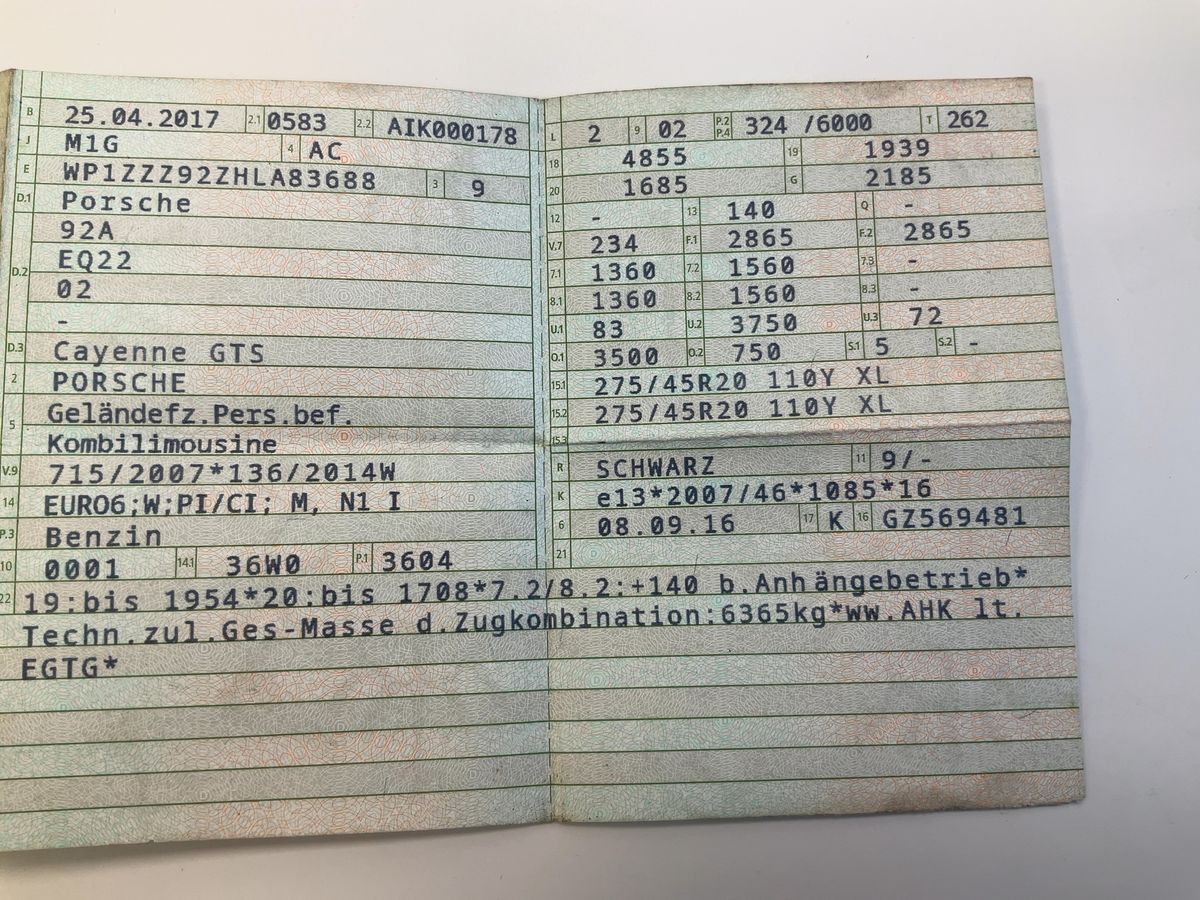 B 25.04.2017 2.1 0583 2.2 AIK000178
J M1G 4 AC
E WP1ZZZ92ZHLA83688 3 9
D.1 Porsche
92A
D.2 EQ22
02
-
D.3 Cayenne GTS
2 PORSCHE
5 Geländefz.Pers.bef.
Kombilimousine
V.9 715/2007*136/2014W
14 EURO6;W;PI/CI; M, N1 I
P.3 Benzin
10 0001 14.1 36W0 P.1 3604
L 2 9 02 P.2 P.4 324 /6000 T 262
18 4855 19 1939
20 1685 G 2185
12 - 13 140 Q -
V.7 234 F.1 2865 F.2 2865
7.1 1360 7.2 1560 7.3 -
8.1 1360 8.2 1560 8.3 -
U.1 83 U.2 3750 U.3 72
O.1 3500 O.2 750 S.1 5 S.2 -
15.1 275/45R20 110Y XL
15.2 275/45R20 110Y XL
15.3 -
R SCHWARZ 11 9/-
K e13*2007/46*1085*16
6 08.09.16 17 K 16 GZ569481
21
22 19:bis 1954*20:bis 1708*7.2/8.2:+140 b.Anhängebetrieb*
Techn.zul.Ges-Masse d.Zugkombination:6365kg*ww.AHK lt.
EGTG*